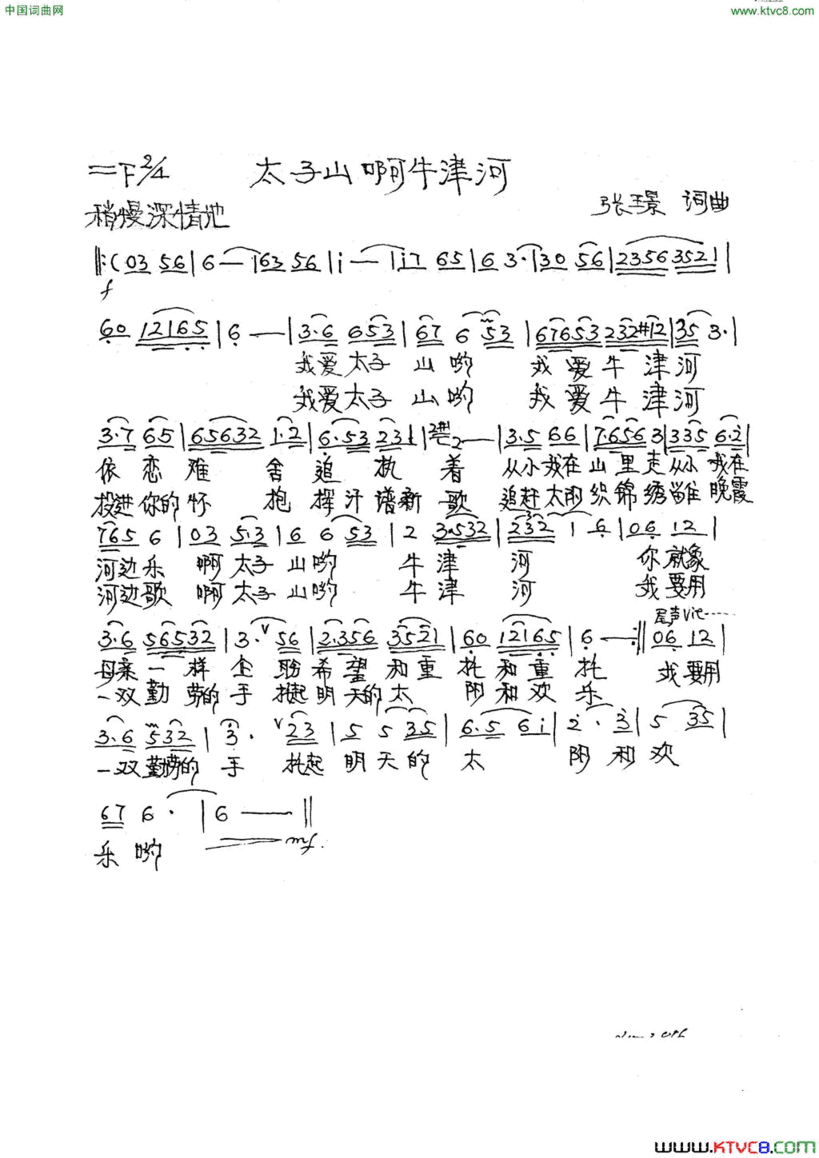 中国词曲网
www.ktvc8.com
=F 2/4 太子山啊牛津河
稍慢深情地
张璟 词曲
‖:(03 56|6 —|63 56|i —|i7 65|6 3·|30 56|2356 3521|
f
60 12165|6 —|3·6 653|67 6 53|67653 232#12|35 3·|
我爱太子 山哟 我 爱 牛 津 河
我爱太子 山哟 我 爱 牛 津 河
3·7 65|65632 1·2|6·53 231|2 —|3·5 66|7·656 3|335 6·2|
依 恋 难 舍 追 执 着 从小我在山里走从小我在
投进你的怀 抱 挥汗谱新 歌 追赶太阳织锦绣 晚霞
765 6|03 5·3|6 6 53|2 3·532|232 1 6|06 12|
河边乐 啊太子山哟 牛津 河 你就象
河边歌 啊太子山哟 牛津 河 我要用
尾声
3·6 56532|3·V 56|2·356 3521|60 12165|6· —:‖06 12|
母亲一样 企 盼希望 和重 托和重 托 我要用
一双勤劳的手 托起明天的太 阳和欢 乐
3·6 532|3· V 23|5 5 35|6·5 6i|2· 3|5 35|
一双勤劳的 手 托起 明天的 太 阳 和欢
67 6·|6 —‖
mf
乐 哟
www.KTVC8.com